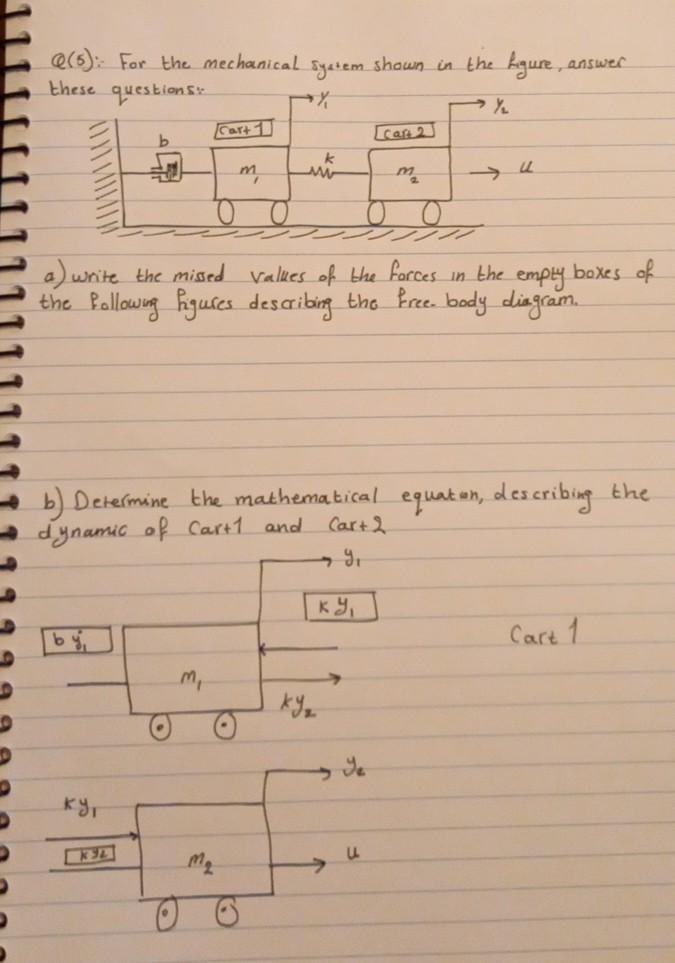 Q(5):- For the mechanical system shown in the figure, answer
these questions:-
y₁
y₂
Cart 1
Cart 2
b
m₁
k
m₂
u
a) write the missed values of the forces in the empty boxes of
the following figures describing the free-body diagram.
b) Determine the mathematical equaton, describing the
dynamic of Cart1 and Cart2
y₁
k y₁
b ẏ₁
Cart 1
m₁
ky₂
y₂
ky₁
ky₂
m₂
u